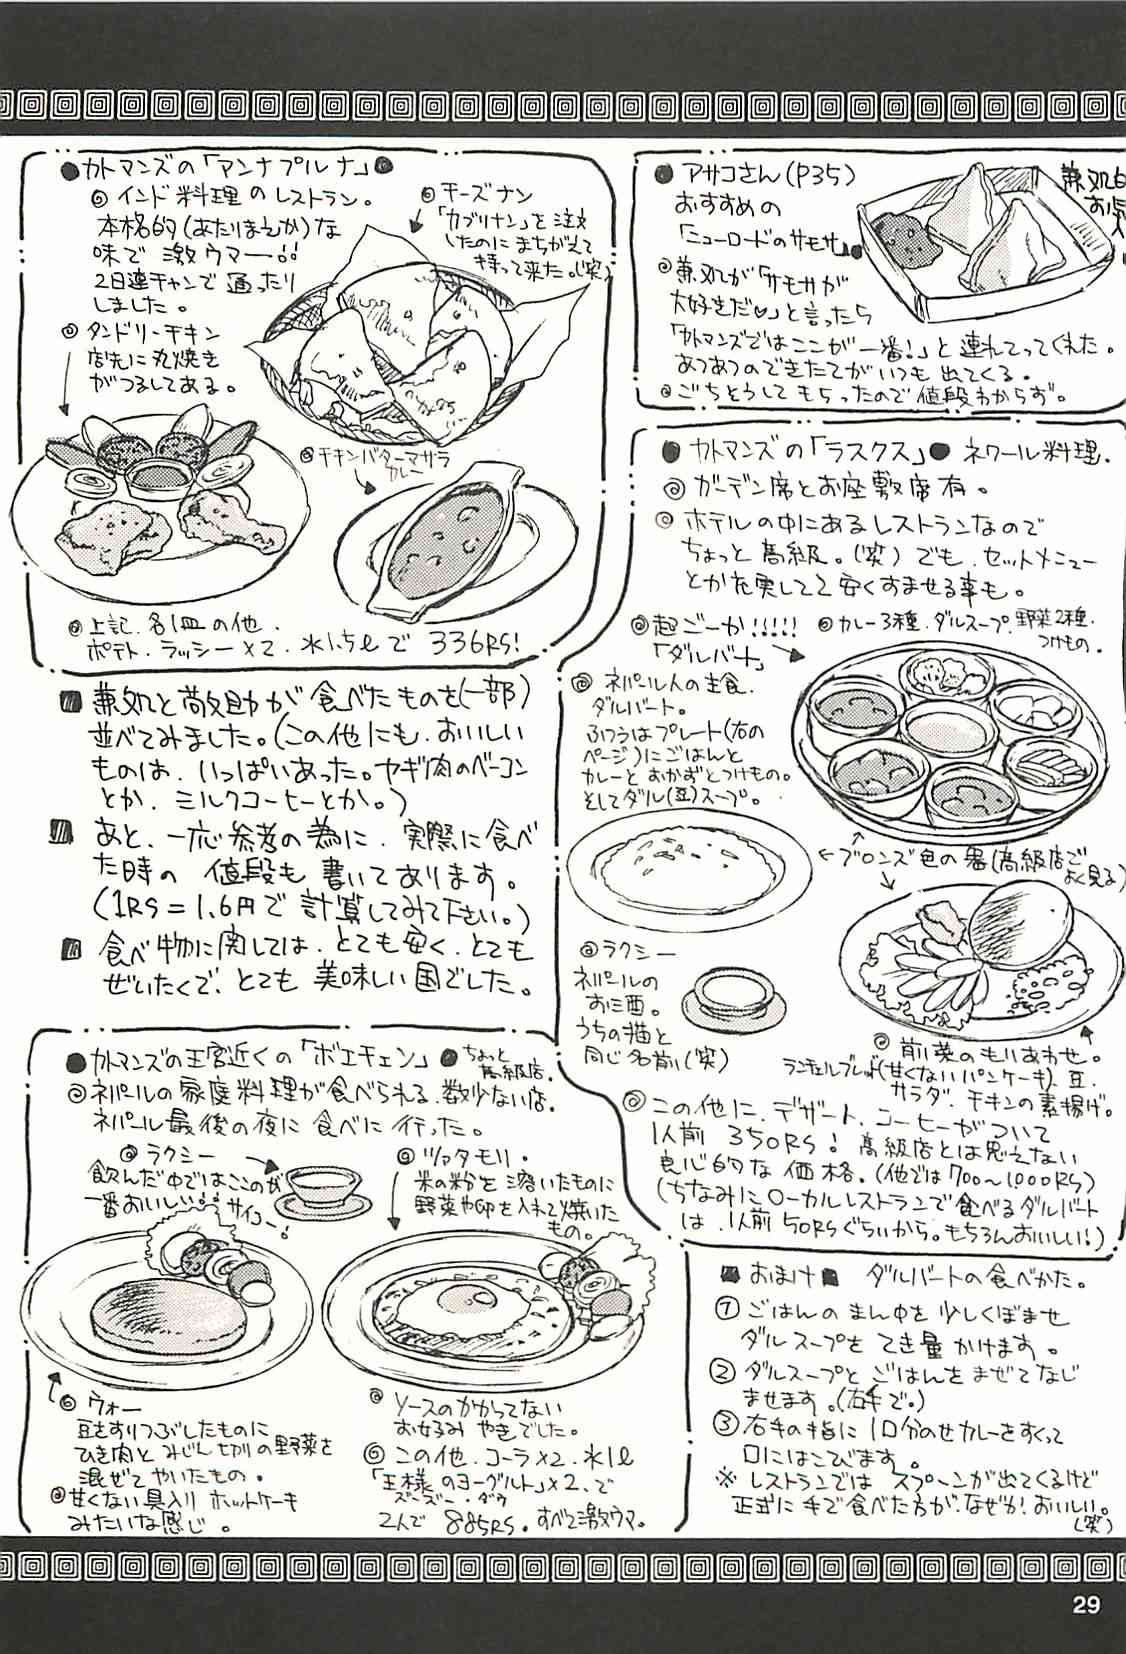 ●カトマンズの「アンナプルナ」●
◎インド料理のレストラン。
本格的(あたりまえか)な
味で激ウマー!!
2日連チャンで通ったり
しました。
◎チーズナン
「カブリナン」を注文
したのにまちがえて
持って来た。(笑)
◎タンドリーチキン
店先に丸焼き
がつるしてある。
◎チキンバターマサラ
カレー
◎上記、各1皿の他、
ポテト、ラッシー×2、水1.5ℓで 336RS!
■兼処と敵助が食べたものを(一部)
並べてみました。(この他にも、おいしい
ものは、いっぱいあった。ヤギ肉のベーコン
とか、ミルクコーヒーとか。)
■あと、一応参考の為に、実際に食べ
た時の 値段も書いてあります。
(1RS=1.6円で計算してみて下さい。)
■食べ物に関しては、とても安く、とても
ぜいたくで、とても美味しい国でした。
●カトマンズの王宮近くの「ボエチェン」●ちょっと
高級店。
◎ネパールの家庭料理が食べられる、数少ない店。
ネパール最後の夜に食べに行った。
◎ラクシー
飲んだ中ではここのが
一番おいしい!!サイコー!
◎ツァタモリ・
米の粉を溶いたものに
野菜や卵を入れて焼いた
もの。
◎ウォー
豆をすりつぶしたものに
ひき肉とみじん切りの野菜を
混ぜてやいたもの。
◎甘くない具入りホットケーキ
みたいな感じ。
◎ソースのかかってない
お好みやきでした。
◎この他、コーラ×2、水1ℓ
「王様のヨーグルト」×2、で
ズーズー・ダウ
2人で 885RS。すべて激ウマ。
●アサコさん(P35)
おすすめの
「ニューロードのサモサ」●
◎兼処が「サモサが
大好きだ♡」と言ったら
「カトマンズではここが一番!」と連れてってくれた。
あつあつのできたてがいつも出てくる。
◎ごちそうしてもらったので値段わからず。
●カトマンズの「ラスクス」●ネワール料理.
◎ガーデン席とお座敷席有。
◎ホテルの中にあるレストランなので
ちょっと高級。(笑)でも、セットメニュー
とか充実してて安くすませる事も。
◎超ごーか!!!!!
「ダルバート」
◎カレー3種、ダルスープ、野菜2種、
つけもの。
◎ネパール人の主食、
ダルバート。
ふつうはプレート(右の
ページ)にごはんと
カレーとおかずとつけもの。
そしてダル(豆)スープ。
←ブロンズ色の器(高級店で
よく見る)
◎ラクシー
ネパールの
お酒。
うちの猫と
同じ名前(笑)
◎前菜のもりあわせ。
(甘くないパンケーキ)、豆、
サラダ、チキンの素揚げ。
◎この他に、デザート、コーヒーがついて
1人前 350RS! 高級店とは思えない
良心的な価格。(他では700〜1000RS)
(ちなみにローカルレストランで食べるダルバート
は、1人前50RSぐらいから。もちろんおいしい!)
■おまけ■ ダルバートの食べかた。
①ごはんのまん中を少しくぼませ
ダルスープをてき量かけます。
②ダルスープとごはんをまぜてなじ
ませます。(右手で。)
③右手の指に1口分のせカレーをすくって
口にはこびます。
※レストランではスプーンが出てくるけど
正式に手で食べた方が、なぜか!おいしい。
(笑)
29